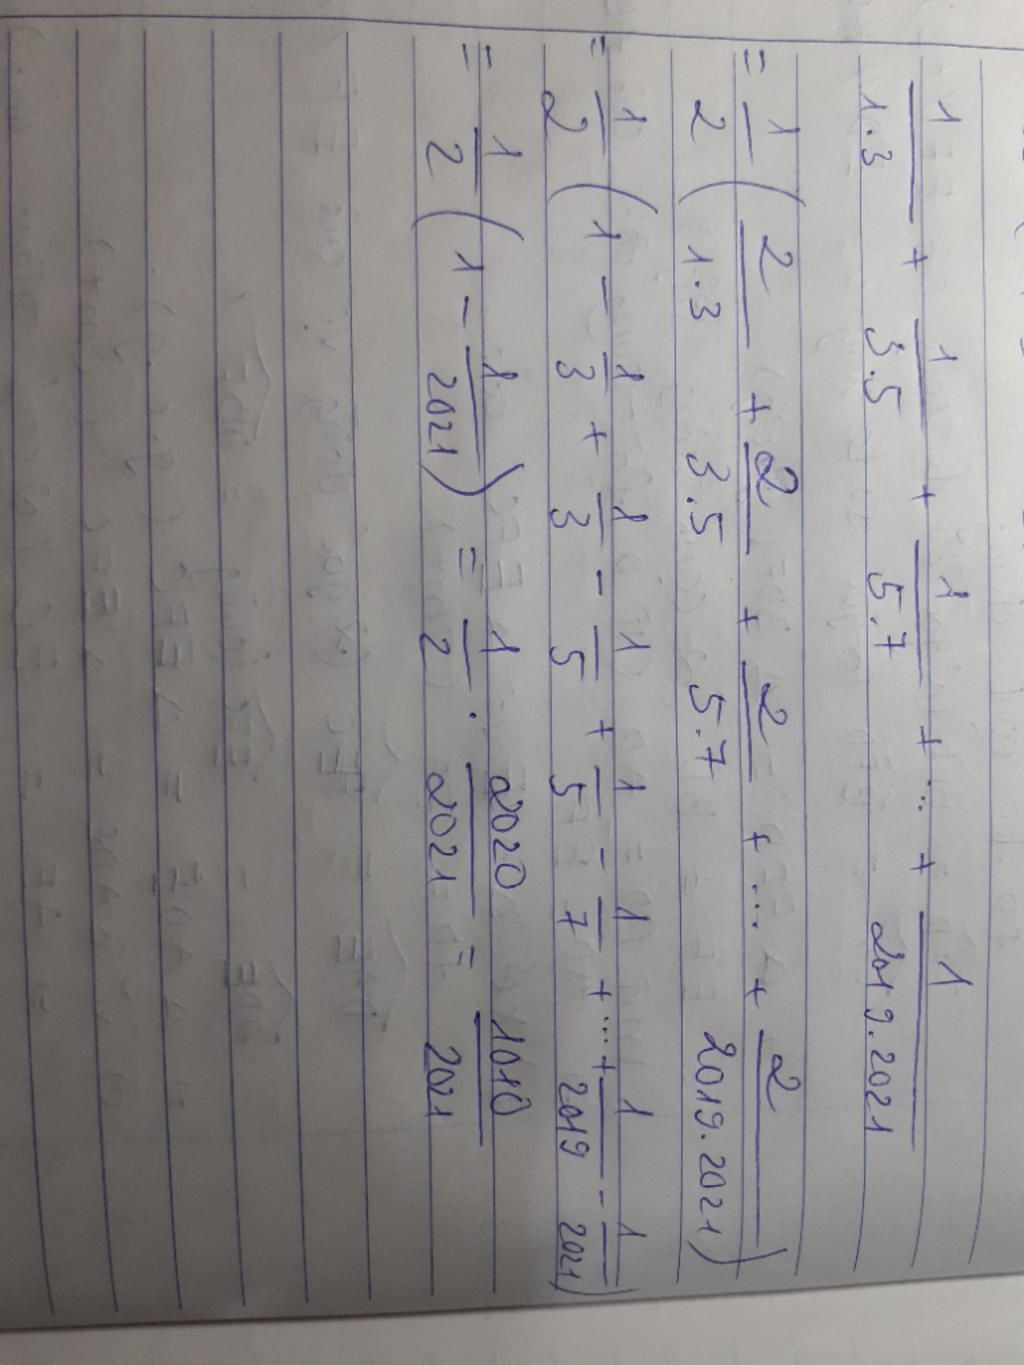 1/1.3 + 1/3.5 + 1/5.7 + ... + 1/2019.2021
= 1/2 ( 2/1.3 + 2/3.5 + 2/5.7 + ... + 2/2019.2021 )
= 1/2 ( 1 - 1/3 + 1/3 - 1/5 + 1/5 - 1/7 + ... + 1/2019 - 1/2021 )
= 1/2 ( 1 - 1/2021 ) = 1/2 . 2020/2021 = 1010/2021